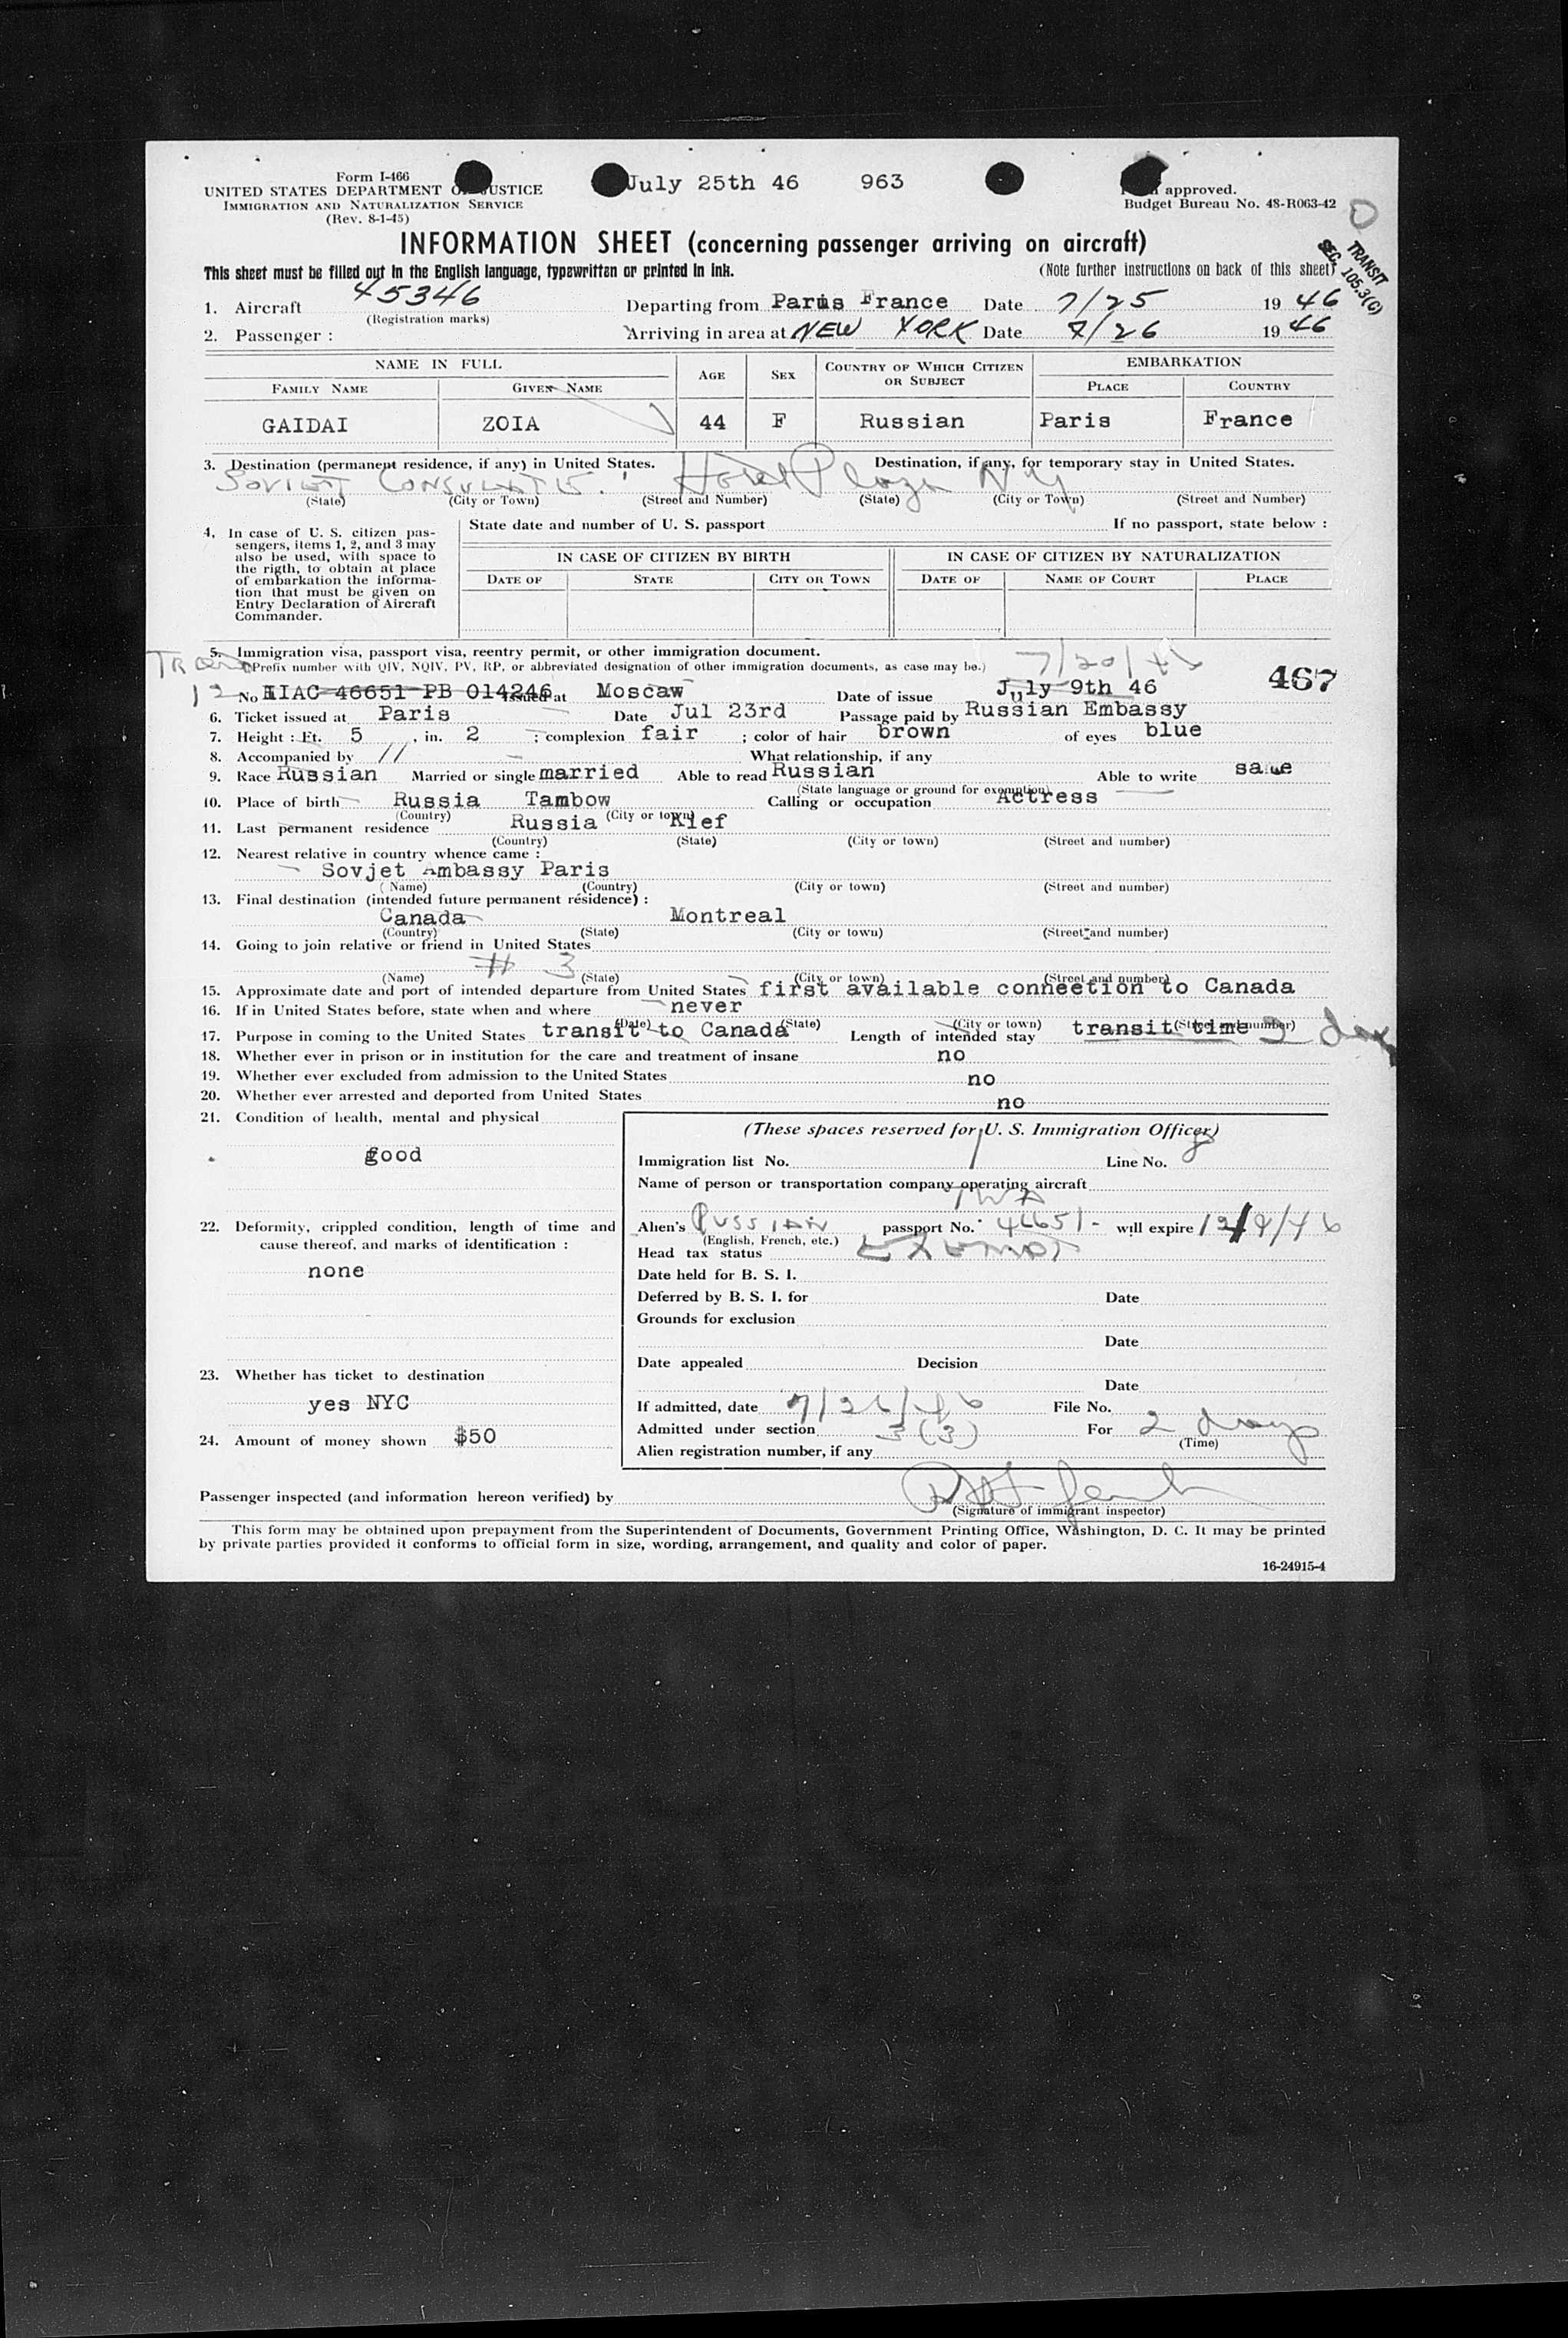 Form I-466
UNITED STATES DEPARTMENT OF JUSTICE
IMMIGRATION AND NATURALIZATION SERVICE
(Rev. 8-1-45)
July 25th 46 963
approved.
Budget Bureau No. 48-R063-42
TRANSIT
SEC. 105.3(C)
INFORMATION SHEET (concerning passenger arriving on aircraft)
This sheet must be filled out in the English language, typewritten or printed in ink. (Note further instructions on back of this sheet)
1. Aircraft 45346 Departing from Paris France Date 7/25 19 46
(Registration marks)
2. Passenger : Arriving in area at NEW YORK Date 7/26 19 46
NAME IN FULL AGE SEX COUNTRY OF WHICH CITIZEN OR SUBJECT EMBARKATION
FAMILY NAME GIVEN NAME PLACE COUNTRY
GAIDAI ZOIA 44 F Russian Paris France
3. Destination (permanent residence, if any) in United States. Destination, if any, for temporary stay in United States.
SOVIET CONSULATE. Hotel Plaza NY
(State) (City or Town) (Street and Number) (State) (City or Town) (Street and Number)
4. In case of U. S. citizen pas-
sengers, items 1, 2, and 3 may
also be used, with space to
the rigth, to obtain at place
of embarkation the informa-
tion that must be given on
Entry Declaration of Aircraft
Commander.
State date and number of U. S. passport If no passport, state below :
IN CASE OF CITIZEN BY BIRTH IN CASE OF CITIZEN BY NATURALIZATION
DATE OF STATE CITY OR TOWN DATE OF NAME OF COURT PLACE
5. Immigration visa, passport visa, reentry permit, or other immigration document.
(Prefix number with QIV, NQIV, PV, RP, or abbreviated designation of other immigration documents, as case may be.) 7/20/46
467
12 No 46651 PB 014246 Issued at Moscaw Date of issue July 9th 46
6. Ticket issued at Paris Date Jul 23rd Passage paid by Russian Embassy
7. Height : Ft. 5 , in. 2 ; complexion fair ; color of hair brown of eyes blue
8. Accompanied by // What relationship, if any
9. Race Russian Married or single married Able to read Russian Able to write same
(State language or ground for exemption)
10. Place of birth Russia Tambow Calling or occupation Actress
(Country) (City or town)
11. Last permanent residence Russia Kief
(Country) (State) (City or town) (Street and number)
12. Nearest relative in country whence came :
Sovjet Ambassy Paris
(Name) (Country) (City or town) (Street and number)
13. Final destination (intended future permanent résidence) :
Canada Montreal
(Country) (State) (City or town) (Street and number)
14. Going to join relative or friend in United States
# 3
(Name) (State) (City or town) (Street and number)
15. Approximate date and port of intended departure from United States first available connection to Canada
16. If in United States before, state when and where never
(Date) (State) (City or town) (Street and number)
17. Purpose in coming to the United States transit to Canada Length of intended stay transit time 2 days
18. Whether ever in prison or in institution for the care and treatment of insane no
19. Whether ever excluded from admission to the United States no
20. Whether ever arrested and deported from United States no
21. Condition of health, mental and physical
good
22. Deformity, crippled condition, length of time and
cause thereof, and marks of identification :
none
23. Whether has ticket to destination
yes NYC
24. Amount of money shown $50
(These spaces reserved for U. S. Immigration Officer)
Immigration list No. 1 Line No. 8
Name of person or transportation company operating aircraft
TWA
Alien's RUSSIAN passport No. 46651- will expire 12/9/46
(English, French, etc.)
Head tax status EXEMPT
Date held for B. S. I.
Deferred by B. S. I. for Date
Grounds for exclusion
Date
Date appealed Decision
Date
If admitted, date 7/26/46 File No.
Admitted under section 3(3) For 2 days
(Time)
Alien registration number, if any
Passenger inspected (and information hereon verified) by
(Signature of immigrant inspector)
This form may be obtained upon prepayment from the Superintendent of Documents, Government Printing Office, Washington, D. C. It may be printed
by private parties provided it conforms to official form in size, wording, arrangement, and quality and color of paper.
16-24915-4